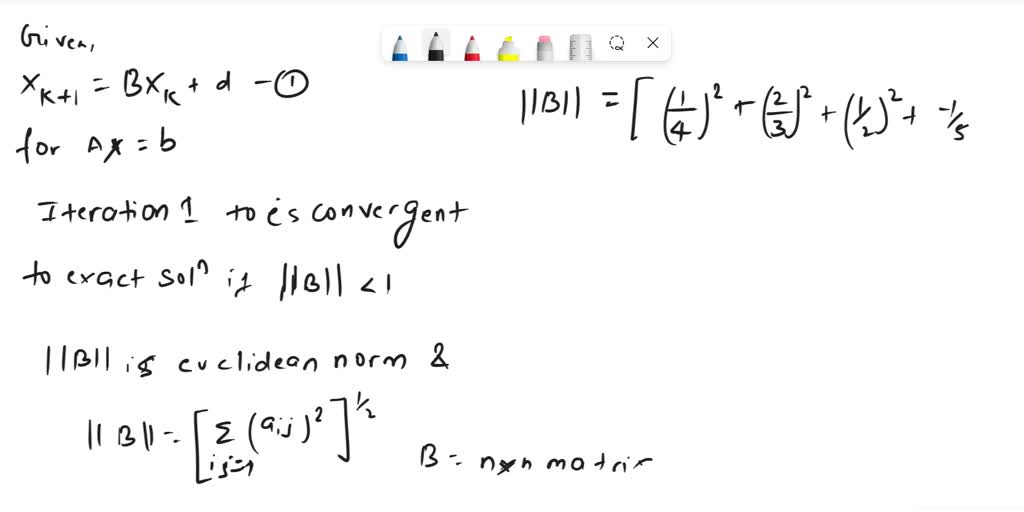 Given,
x_{k+1} = Bx_k + d - ①
for Ax = b
Iteration 1 to is convergent
to exact sol^n if ||B|| < 1
||B|| is euclidean norm &
||B|| = [Σ_{i,j=1} (a_{ij})^2]^{1/2}
B = n×n matrix
||B|| = [(1/4)^2 + (2/3)^2 + (1/2)^2 + -1/5